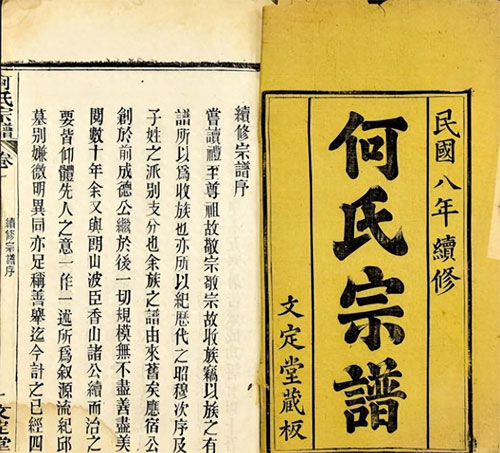 民國八年續修
何氏宗譜
文定堂藏板
續修宗譜序
嘗讀禮至尊祖故敬宗敬宗故收族竊以族之有
譜所以爲收族也亦所以紀歷代之昭穆次序及
子姓之派別支分也余族之譜由來舊矣應宿公
創於前成德公繼於後一切規模無不盡善盡美
閱數十年余又與閉山波臣香山諸公續而治之
要皆仰體先人之意一作一述所爲叙源流紀邱
墓別嫌微明異同亦足稱善舉迄今計之已經四
何氏宗譜
卷一
續修宗譜序
一
文定堂